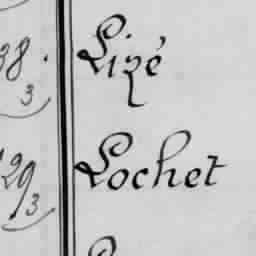 38. Lizé
3
129 Lochet
3